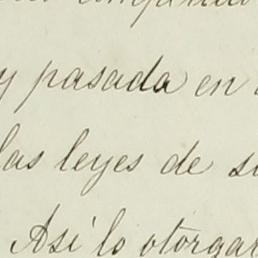 y pasada en
las leyes de
Así lo otorgar